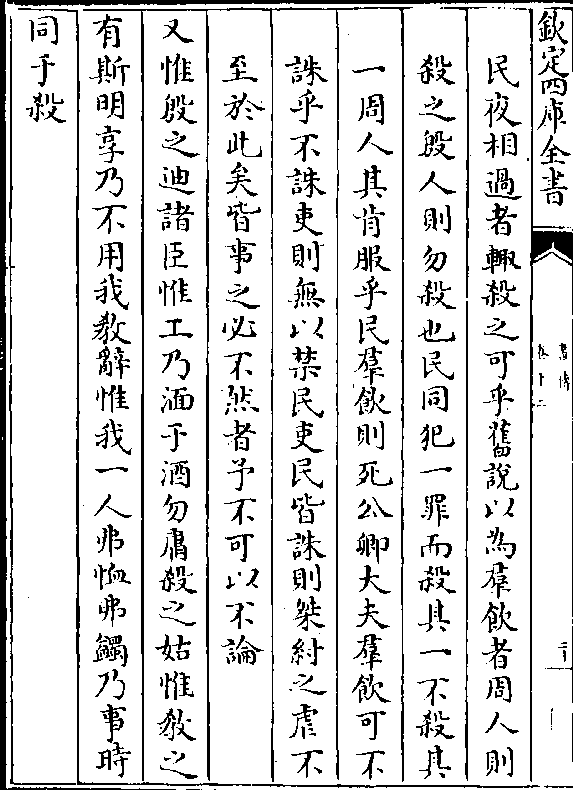 欽定四庫全書
書傳
卷十二
二十
民夜相過者輒殺之可乎舊說以為羣飲者周人則
殺之殷人則勿殺也民同犯一罪而殺其一不殺其
一周人其肯服乎民羣飲則死公卿大夫羣飲可不
誅乎不誅吏則無以禁民吏民皆誅則桀紂之虐不
至於此矣皆事之必不然者予不可以不論
又惟殷之迪諸臣惟工乃湎于酒勿庸殺之姑惟教之
有斯明享乃不用我教辭惟我一人弗恤弗蠲乃事時
同于殺